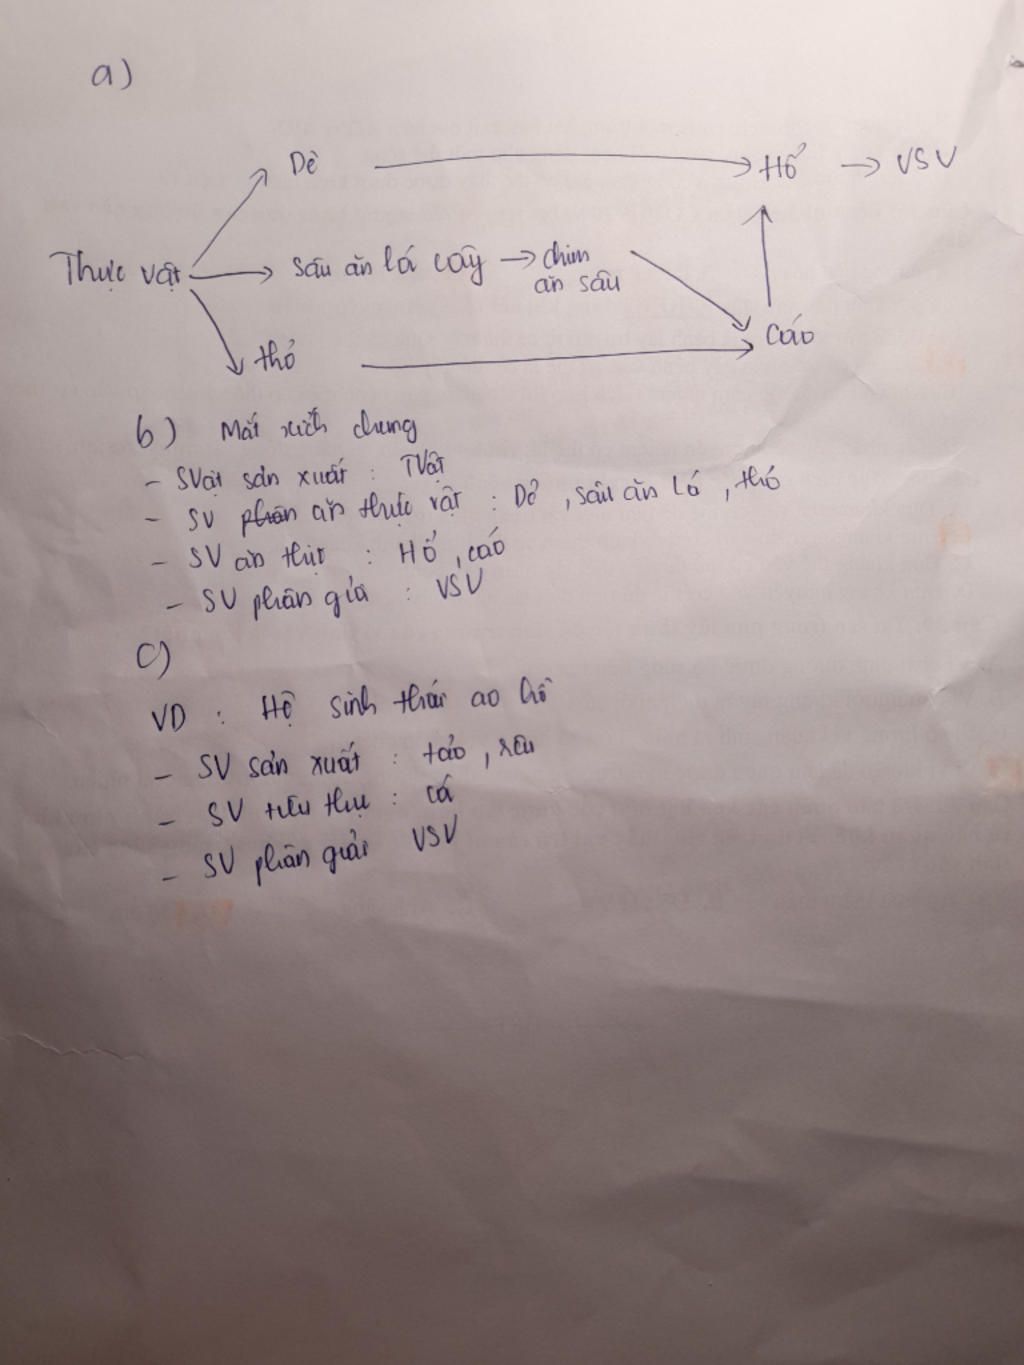 a)
Dê → Hổ → VSV
Thực vật → Sâu ăn lá cây → chim
ăn sâu
Cáo
thỏ
b) Mắt xích chung
- SVật sản xuất : TVật
- SV phân ăn thực vật : Dê , sâu ăn lá , thỏ
- SV ăn thịt : Hổ , cáo
- SV phân giả : VSV
c)
VD : Hệ sinh thái ao hồ
- SV sản xuất : tảo , rêu
- SV tiêu thụ : cá
- SV phân giải VSV